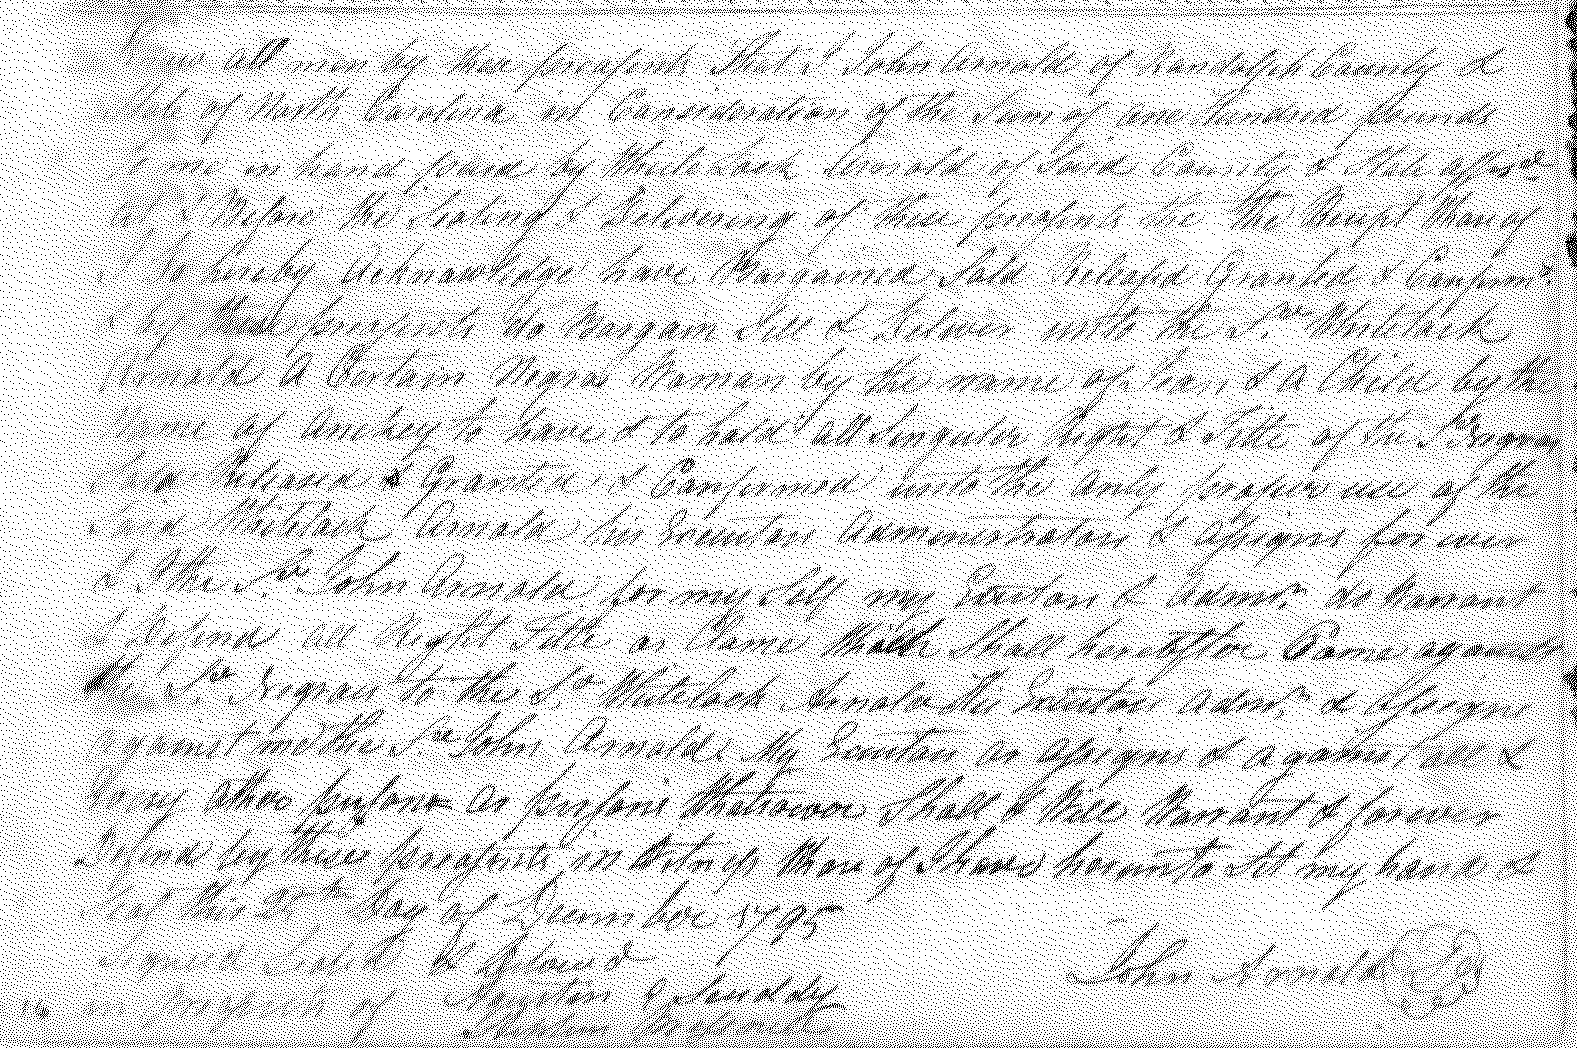 Know all men by these presents that I John Arnold of Randolph County &
State of North Carolina in Consideration of the Sum of one Hundred pounds
to me in hand paid by Whitlock Arnold of Said County & State afsd
at & Before the Sealing & Delivering of these presents the the Receipt
I do hereby acknowledge have Bargained Sold Released Granted & Confirmd
& by these presents do Bargain Sell & Deliver unto the Sd Whitlock
Arnold A Certain Negro Woman by the name of & A Child by the
name of to have & to hold all Singular Right & Title of the Sd
Released & Granted & Confirmed unto the only proper use of the
Said Whitlock Arnold his Executors Administrators & assigns for ever
& I the Sd John Arnold for my Self my Exectors & Admrs do Warrant
& Defend all Right Title or Clame that Shall hereafter Come against
the Sd Negros to the Sd Whitelock Arnold His Exectors Admrs & Assigns
against me the Sd John Arnold My Exectors or assigns & against all &
Every other person or persons Whatsoever Shall & Will Warrant & forever
Defend by these presents in Witness Whereof I have hereunto Set my hand &
Seal this day of December 1795
Signed Seald &
in presents of
John Arnold